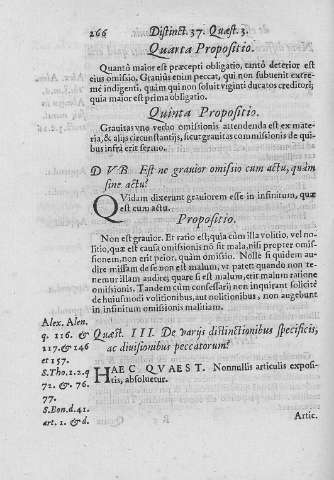 266 Distinct. 37. Quæst. 3.
Quarta Propositio.
Quantò maior est præcepti obligatio, tantò deterior est
eius omissio. Grauiùs enim peccat, qui non subuenit extre-
mè indigenti, quàm qui non soluit viginti ducatos creditori;
quia maior est prima obligatio.
Quinta Propositio.
Grauitas vno verbo omissionis attendenda est ex mate-
ria, & alijs circunstantijs, sicut grauitas commissionis de qui-
bus infrà erit sermo.
DVB. Est ne grauior omissio cum actu, quàm
sine actu?
Quidam dixerunt grauiorem esse in infinitum, quæ
est cum actu.
Propositio.
Non est grauior. Et ratio est; quia cùm illa volitio, vel no-
litio, quæ est causa omissionis no sit mala, nisi propter omis-
sionem, non erit peior, quàm omissio. Nolle si quidem au-
dire missam de se non est malum, vt patet: quando non te-
nemur illam audire; quare si est malum, erit malum ratione
omissionis. Tandem cùm confessarij non inquirant solicitè
de huiusmodi volitionibus, aut nolitionibus, non augebunt
in infinitum omissionis malitiam.
Alex. Alen.
q. 116. &
117. & 146
et 157.
S. Tho. 1. 2. q
72. & 76.
77.
S. Bon. d. 41.
art. 1. & d.
Quæst. III. De varijs distinctionibus specificis,
ac diuisionibus peccatorum?
HAEC QVAEST. Nonnullis articulis exposi-
tis, absoluetur.
Artic.